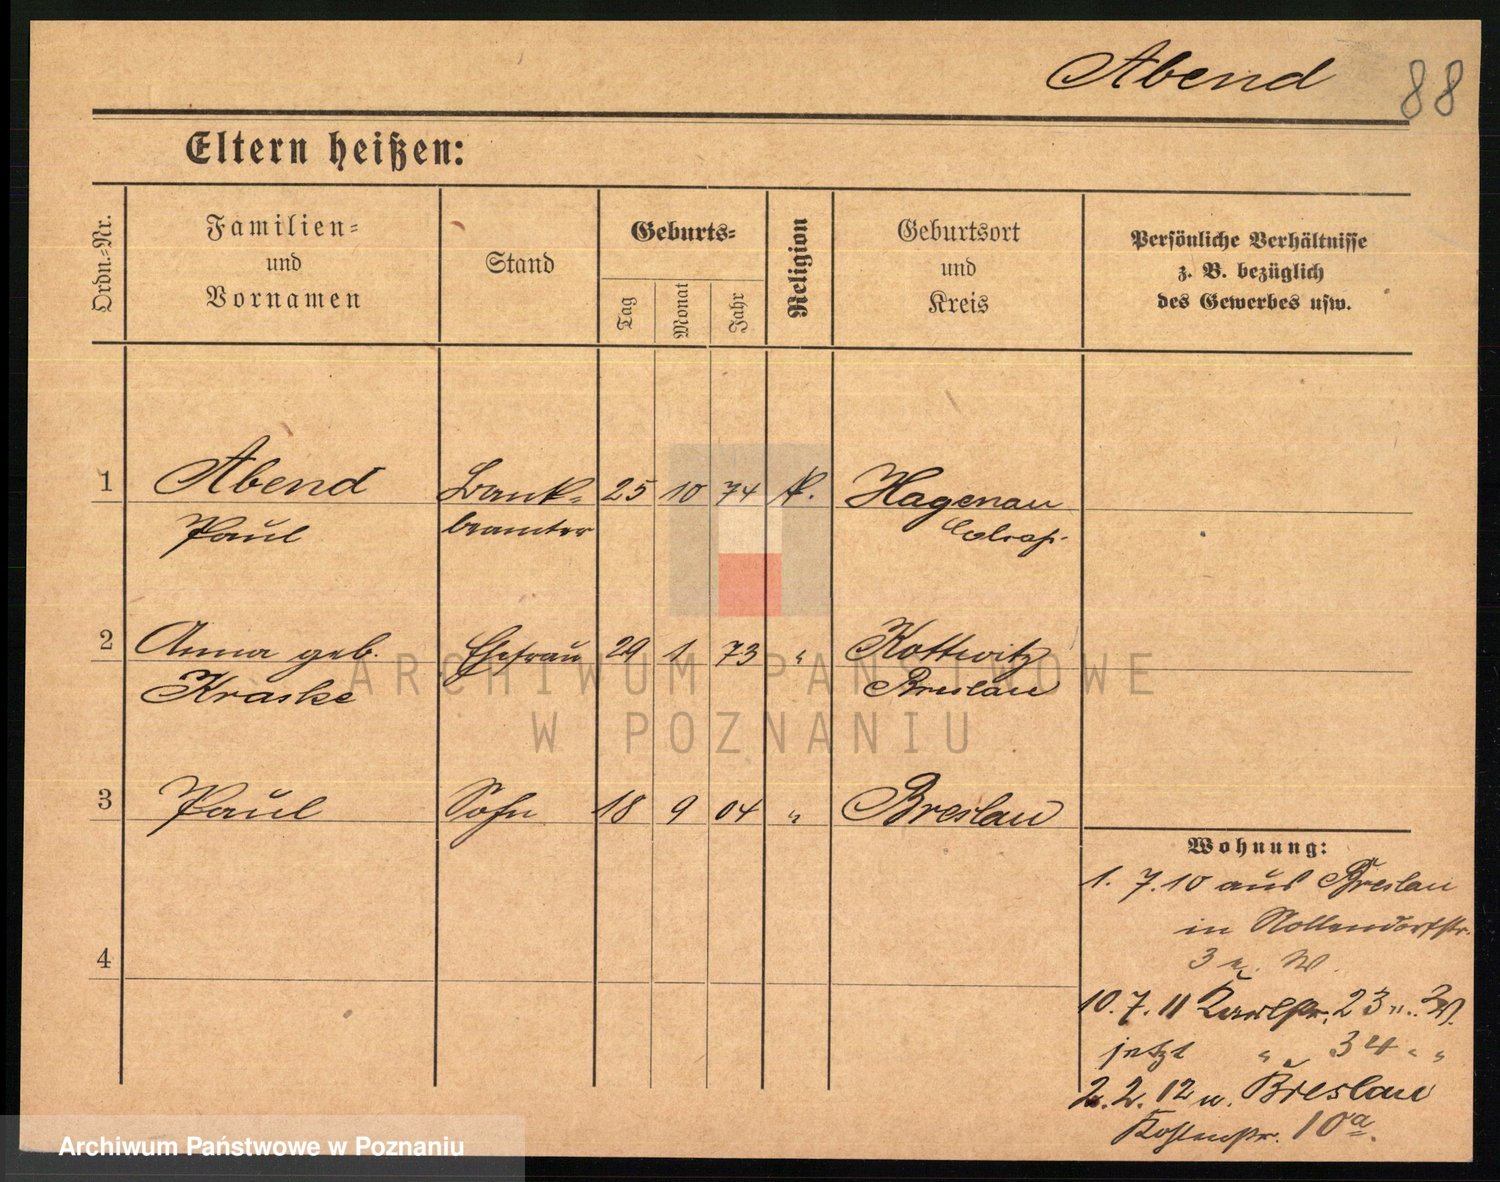 Abend 88
Eltern heißen:
Ordn.=Nr.
Familien=
und
Vornamen
Stand
Geburts=
Tag
Monat
Jahr
Religion
Geburtsort
und
Kreis
Persönliche Verhältnisse
z. B. bezüglich
des Gewerbes usw.
1 Abend Bank= 25 10 74 k. Hagenau
Paul beamter Elsaß
2 Anna geb. Ehefrau 29 1 73 " Kottwitz
Kraske Breslau
3 Paul Sohn 18 9 04 " Breslau
Wohnung:
1. 7. 10 aus Breslau
in Nollendorfstr.
3 W.
4
10. 7. 11 Karlstr. 23 W.
jetzt " 34 " "
2. 2. 12 n. Breslau
Kohlenstr. 10a.
ARCHIWUM PAŃSTWOWE
W POZNANIU
Archiwum Państwowe w Poznaniu